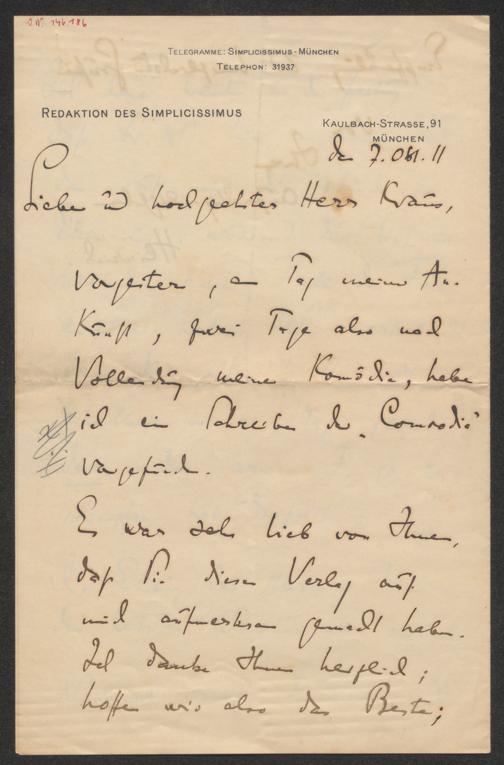 I.N. 146.186
TELEGRAMME: SIMPLICISSIMUS-MÜNCHEN
TELEPHON: 31937
REDAKTION DES SIMPLICISSIMUS
KAULBACH-STRASSE, 91
MÜNCHEN
den 7. Okt. 11
Lieber und hochgeehrter Herr Kraus,
vorgestern, am Tag meiner An-
kunft, zwei Tage also nach
Vollendung meiner Komödie, habe
ich ein Schreiben der „Comoedia"
vorgefunden.
Es war sehr lieb von Ihnen,
daß Sie diesen Verlag auf
mich aufmerksam gemacht haben.
Ich danke Ihnen herzlich;
hoffen wir also das Beste;